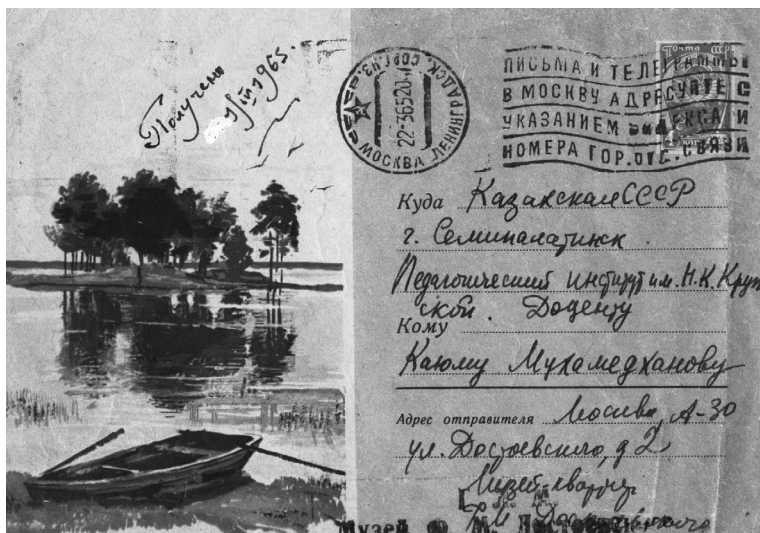 Получено
1965.
МОСКВА ЛЕНИНГРАДСК. СОРТ.УЗ.
22-36520-
Почта СССР
ПИСЬМА И ТЕЛЕГРАММЫ
В МОСКВУ АДРЕСУЙТЕ С
УКАЗАНИЕМ ИНДЕКСА И
НОМЕРА ГОР.ОТД.СВЯЗИ
Куда Казахская ССР
г. Семипалатинск.
Педагогический институт им. Н.К. Круп
ской. Доценту
Кому
Каюму Мухамедханову
Адрес отправителя Москва, А-30
ул. Достоевского, д 2
Музей-квартира
Ф.М. Достоевского
Музей Ф. М. Достоевского